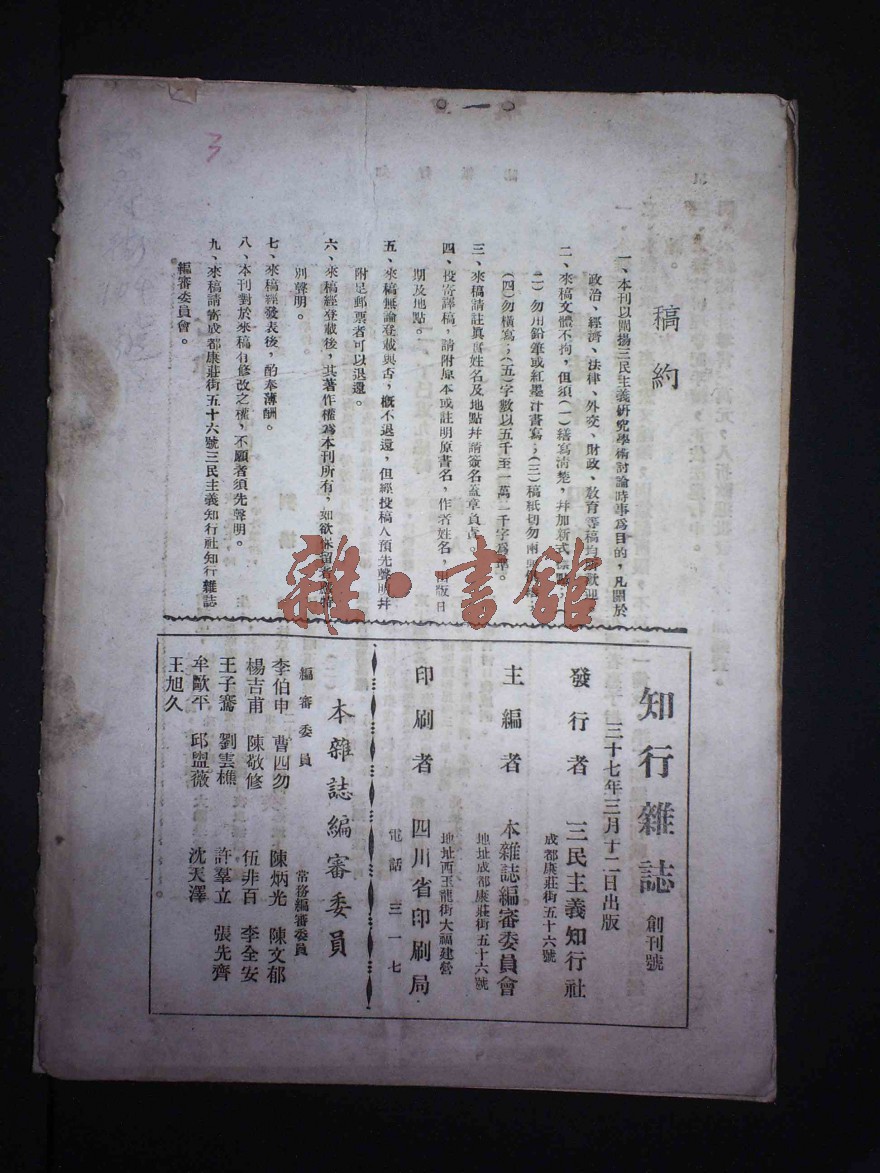 稿約
一、本刊以闡揚三民主義研究學術討論時事為目的，凡關於
政治、經濟、法律、外交、財政、教育等稿均所歡迎
二、來稿文體不拘，但須（一）繕寫清楚，幷加新式標點；
（二）勿用鉛筆或紅墨汁書寫；（三）稿紙切勿兩面
（四）勿橫寫；（五）字數以五千至一萬二千字為
三、來稿請註眞實姓名及地點幷請簽名蓋章負責。
四、投寄譯稿，請附原本或註明原書名，作者姓名，出版日
期及地點。
五、來稿無論登載與否，概不退還，但經投稿人預先聲明幷
附足郵票者可以退還。
六、來稿經登載後，其著作權為本刊所有，如欲保留者
別聲明。
七、來稿經發表後，酌奉薄酬。
八、本刊對於來稿有修改之權，不願者須先聲明。
九、來稿請寄成都康莊街五十六號三民主義知行社知行雜誌
編審委員會。
知行雜誌 創刊號
三十七年三月十二日出版
發行者 三民主義知行社
成都康莊街五十六號
主編者 本雜誌編審委員會
地址成都康莊街五十六號
地址西玉龍街大福建營
印刷者 四川省印刷局
電話三一七
本雜誌編審委員
編審委員 常務編審委員
李伯申 曹四勿 陳炳光 陳文郁
楊吉甫 陳敬修 伍非百 李全安
王子騫 劉雲樵 許羣立 張先齊
牟歐平 邱盥薇 沈天澤
王旭久
雜·書館
3